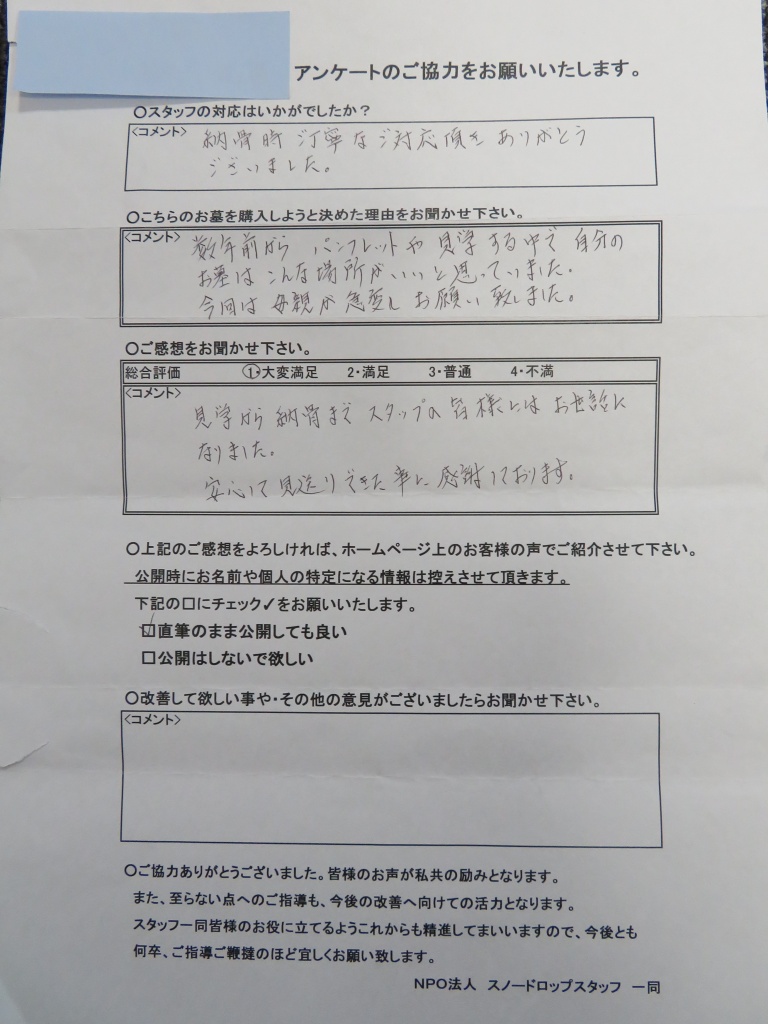 アンケートのご協力をお願いいたします。
〇スタッフの対応はいかがでしたか？
<コメント>
納骨時ご丁寧なご対応頂きありがとう
ございました。
〇こちらのお墓を購入しようと決めた理由をお聞かせ下さい。
<コメント>
数年前から パンフレットや見学する中で自分の
お墓はこんな場所がいいと思っていました。
今回は母親が急変しお願い致しました。
〇ご感想をお聞かせ下さい。
総合評価 1・大変満足 2・満足 3・普通 4・不満
<コメント>
見学から納骨までスタップの皆様にはお世話に
なりました。
安心して見送りできた事に感謝しております。
〇上記のご感想をよろしければ、ホームページ上のお客様の声でご紹介させて下さい。
公開時にお名前や個人の特定になる情報は控えさせて頂きます。
下記の□にチェック✓をお願いいたします。
☑直筆のまま公開しても良い
□公開はしないで欲しい
〇改善して欲しい事や・その他の意見がございましたらお聞かせ下さい。
<コメント>
〇ご協力ありがとうございました。皆様のお声が私共の励みとなります。
また、至らない点へのご指導も、今後の改善へ向けての活力となります。
スタッフ一同皆様のお役に立てるようこれからも精進してまいいますので、今後とも
何卒、ご指導ご鞭撻のほど宜しくお願い致します。
NPO法人 スノードロップスタッフ 一同